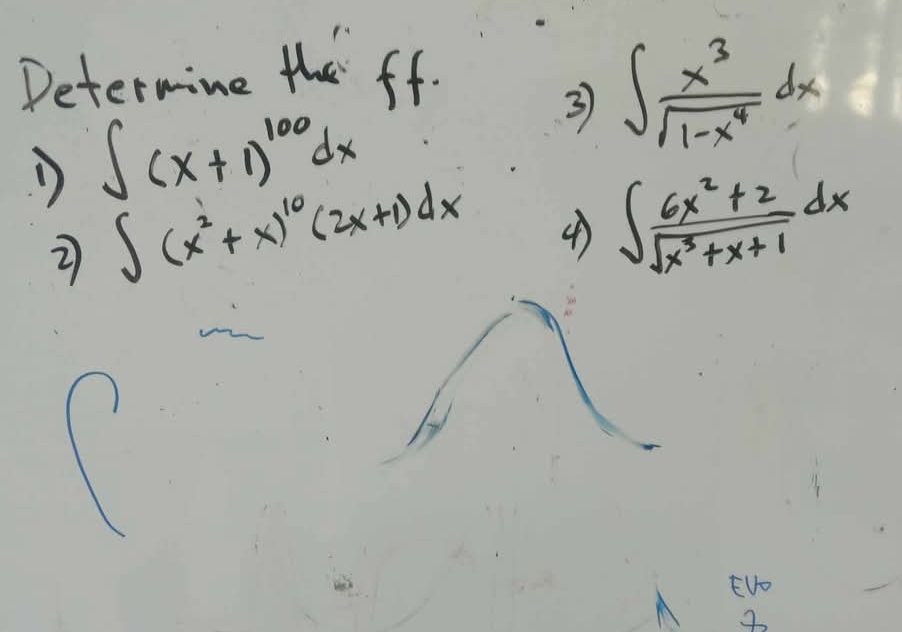 Determine the ff.
1) ∫ (x+1)¹⁰⁰ dx
2) ∫ (x²+x)¹⁰ (2x+1) dx
3) ∫ x³/√(1-x⁴) dx
4) ∫ (6x²+2)/√(x³+x+1) dx